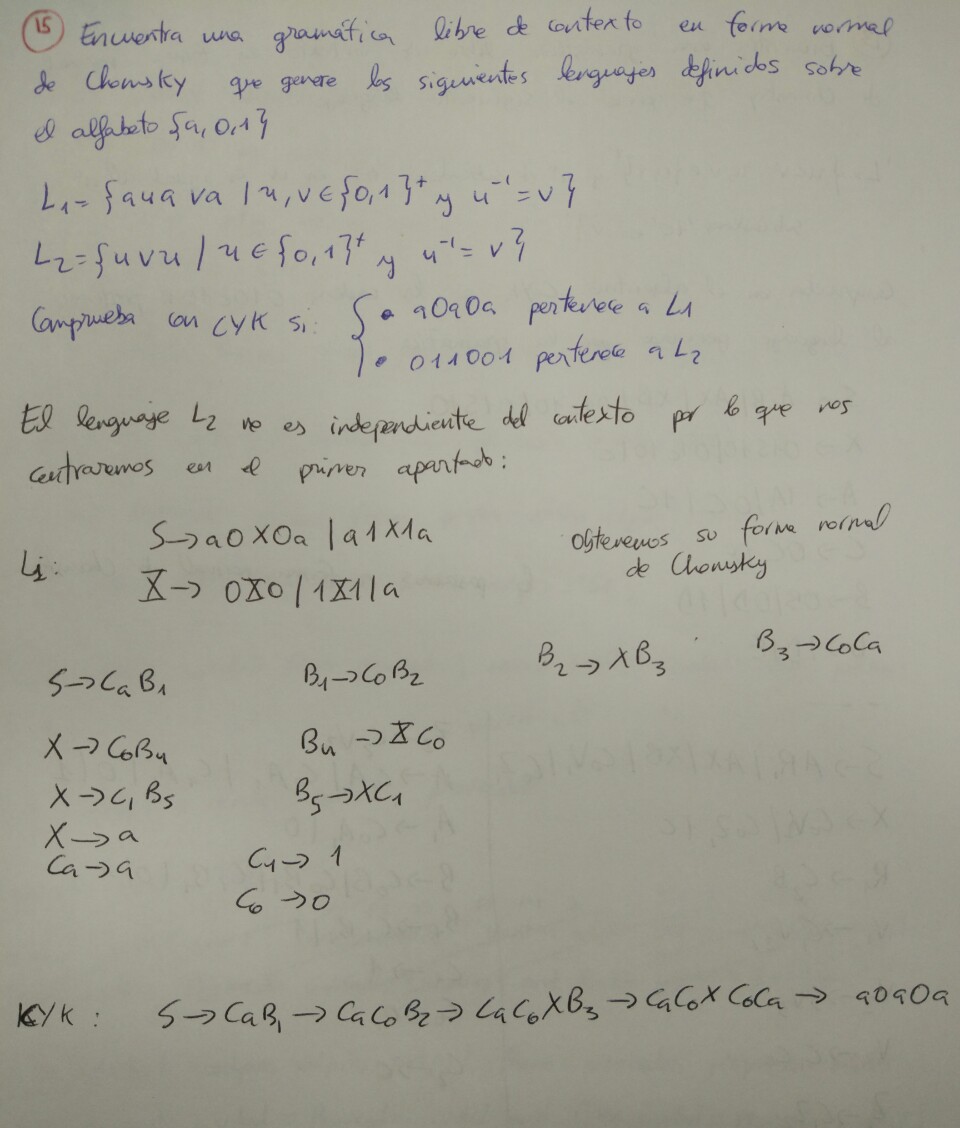 15 Encuentra una gramática libre de contexto en forma normal
de Chomsky que genere los siguientes lenguajes definidos sobre
el alfabeto {a, 0, 1}
L₁ = {aua va / u, v ∈ {0,1}⁺ y u⁻¹ = v}
L₂ = {uvu / u ∈ {0,1}⁺ y u⁻¹ = v}
Comprueba con CYK si: { • a0a0a pertenece a L1
• 011001 pertenece a L₂
El lenguaje L₂ no es independiente del contexto por lo que nos
centraremos en el primer apartado:
L₁: S → a0X0a | a1X1a
X → 0X0 / 1X1 / a
Obtenemos su forma normal
de Chomsky
S → CaB₁ B₁ → C₀B₂ B₂ → XB₃ B₃ → C₀Ca
X → C₀B₄ B₄ → XC₀
X → C₁B₅ B₅ → XC₁
X → a
Ca → a C₁ → 1
C₀ → 0
CYK: S → CaB₁ → CaC₀B₂ → CaC₀XB₃ → CaC₀XC₀Ca → a0a0a